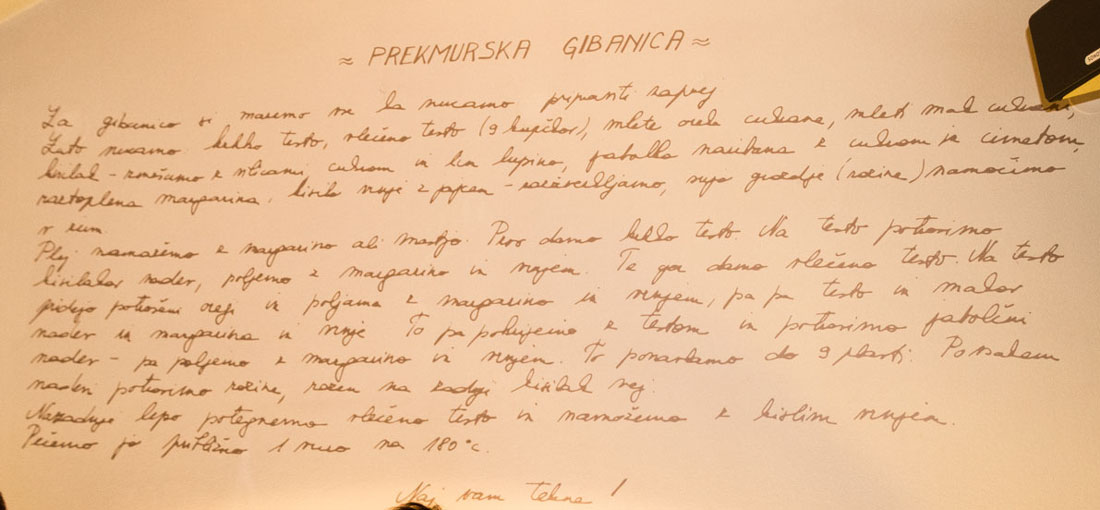 ≈ PREKMURSKA GIBANICA ≈
Za gibanico si maremo vse ta nucamo pripraviti zaprej
Zato nucamo: krhko testo, vlečeno testo (9 kupičkov), mlete orehe cukrane, mleti mak cukrani,
kisilak - zmešamo z vilicami, cukrom in lem lupino, jabolka naribana z cukrom in cimetom,
raztoplena margarina, kisilo vrnje z jajcem - razžvrkljamo, suje grozdje (rozine) namočimo
v rum.
Plej namažemo z margarino ali mastjo. Prvo damo krhko testo. Na testo potrosimo
kisilakov nadev, poljemo z margarino in vrnjem. Te gor damo vlečeno testo. Na testo
pridejo potrošeni orehi in poljama z margarino in vrnjem, pa pa testo in makov
nadev in margarina in vrnje. To pa pokrijemo z testom in potrosimo jabolčni
nadev - pa poljemo z margarino in vrnjem. To ponavlamo do 9 plasti. Po vsakem
nadevi potrosimo rozine, razen na zadnji kisilak nej.
Nazadnje lepo potegnemo vlečeno testo in namažemo z kislim vrnjem.
Pečemo jo približno 1 vuro na 180°C.
Naj vam tekne!